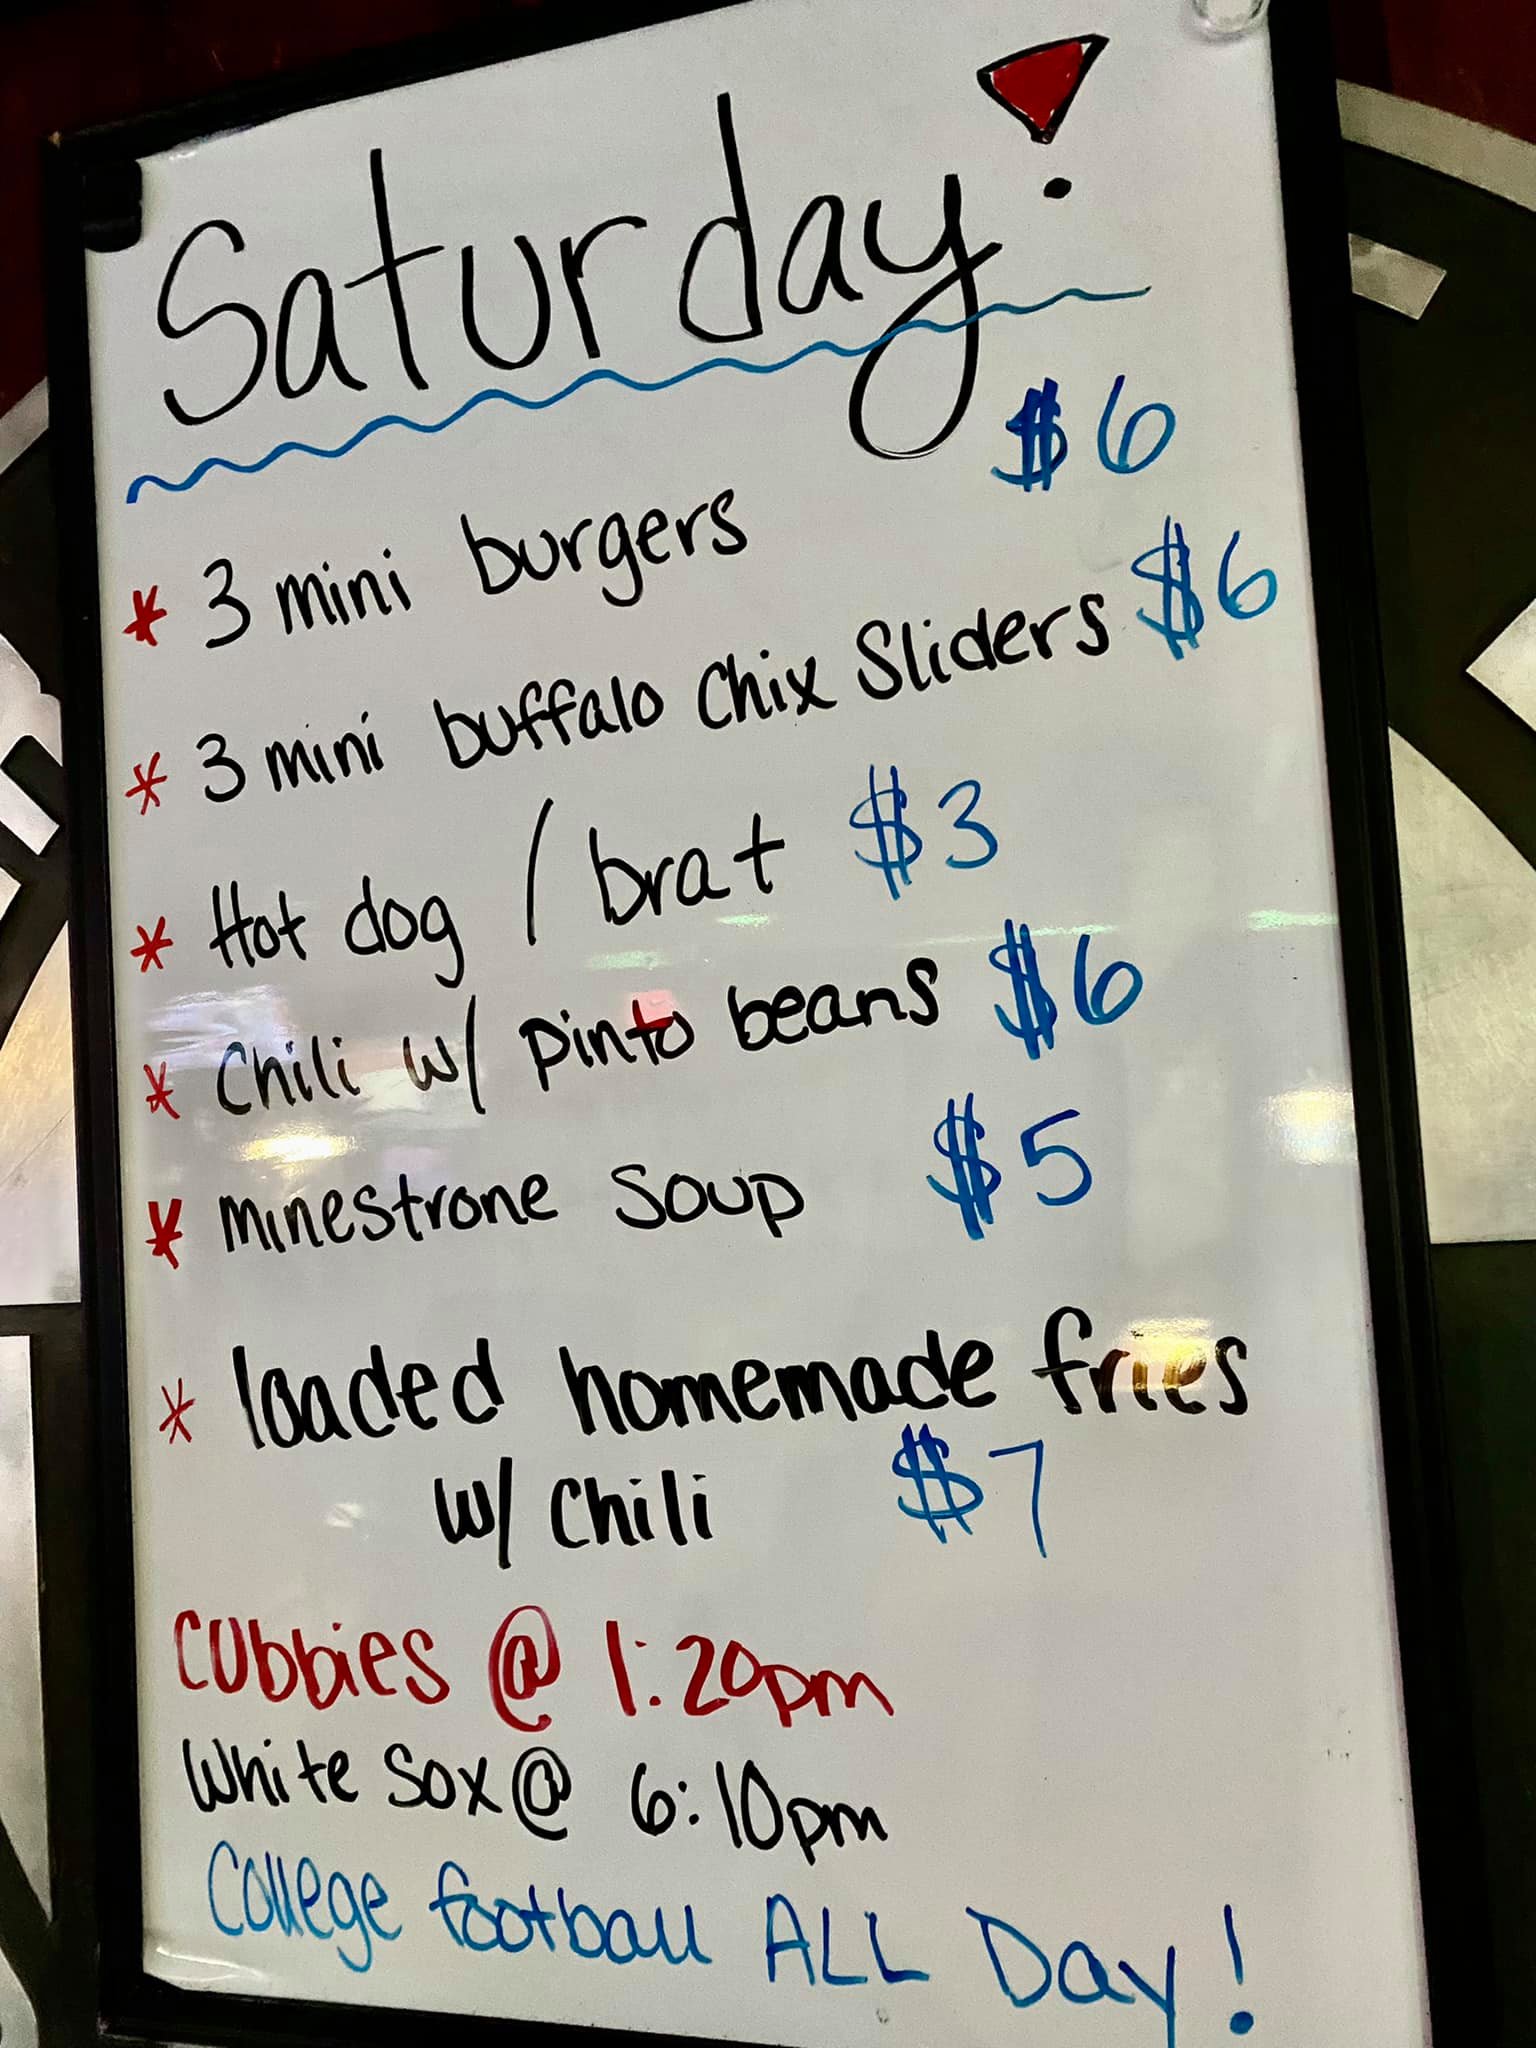 Saturday!
* 3 mini burgers $6
* 3 mini buffalo Chix Sliders $6
* Hot dog / brat $3
* Chili w/ pinto beans $6
* Minestrone Soup $5
* loaded homemade fries
w/ Chili $7
Cubbies @ 1:20pm
White Sox @ 6:10pm
College football ALL Day!